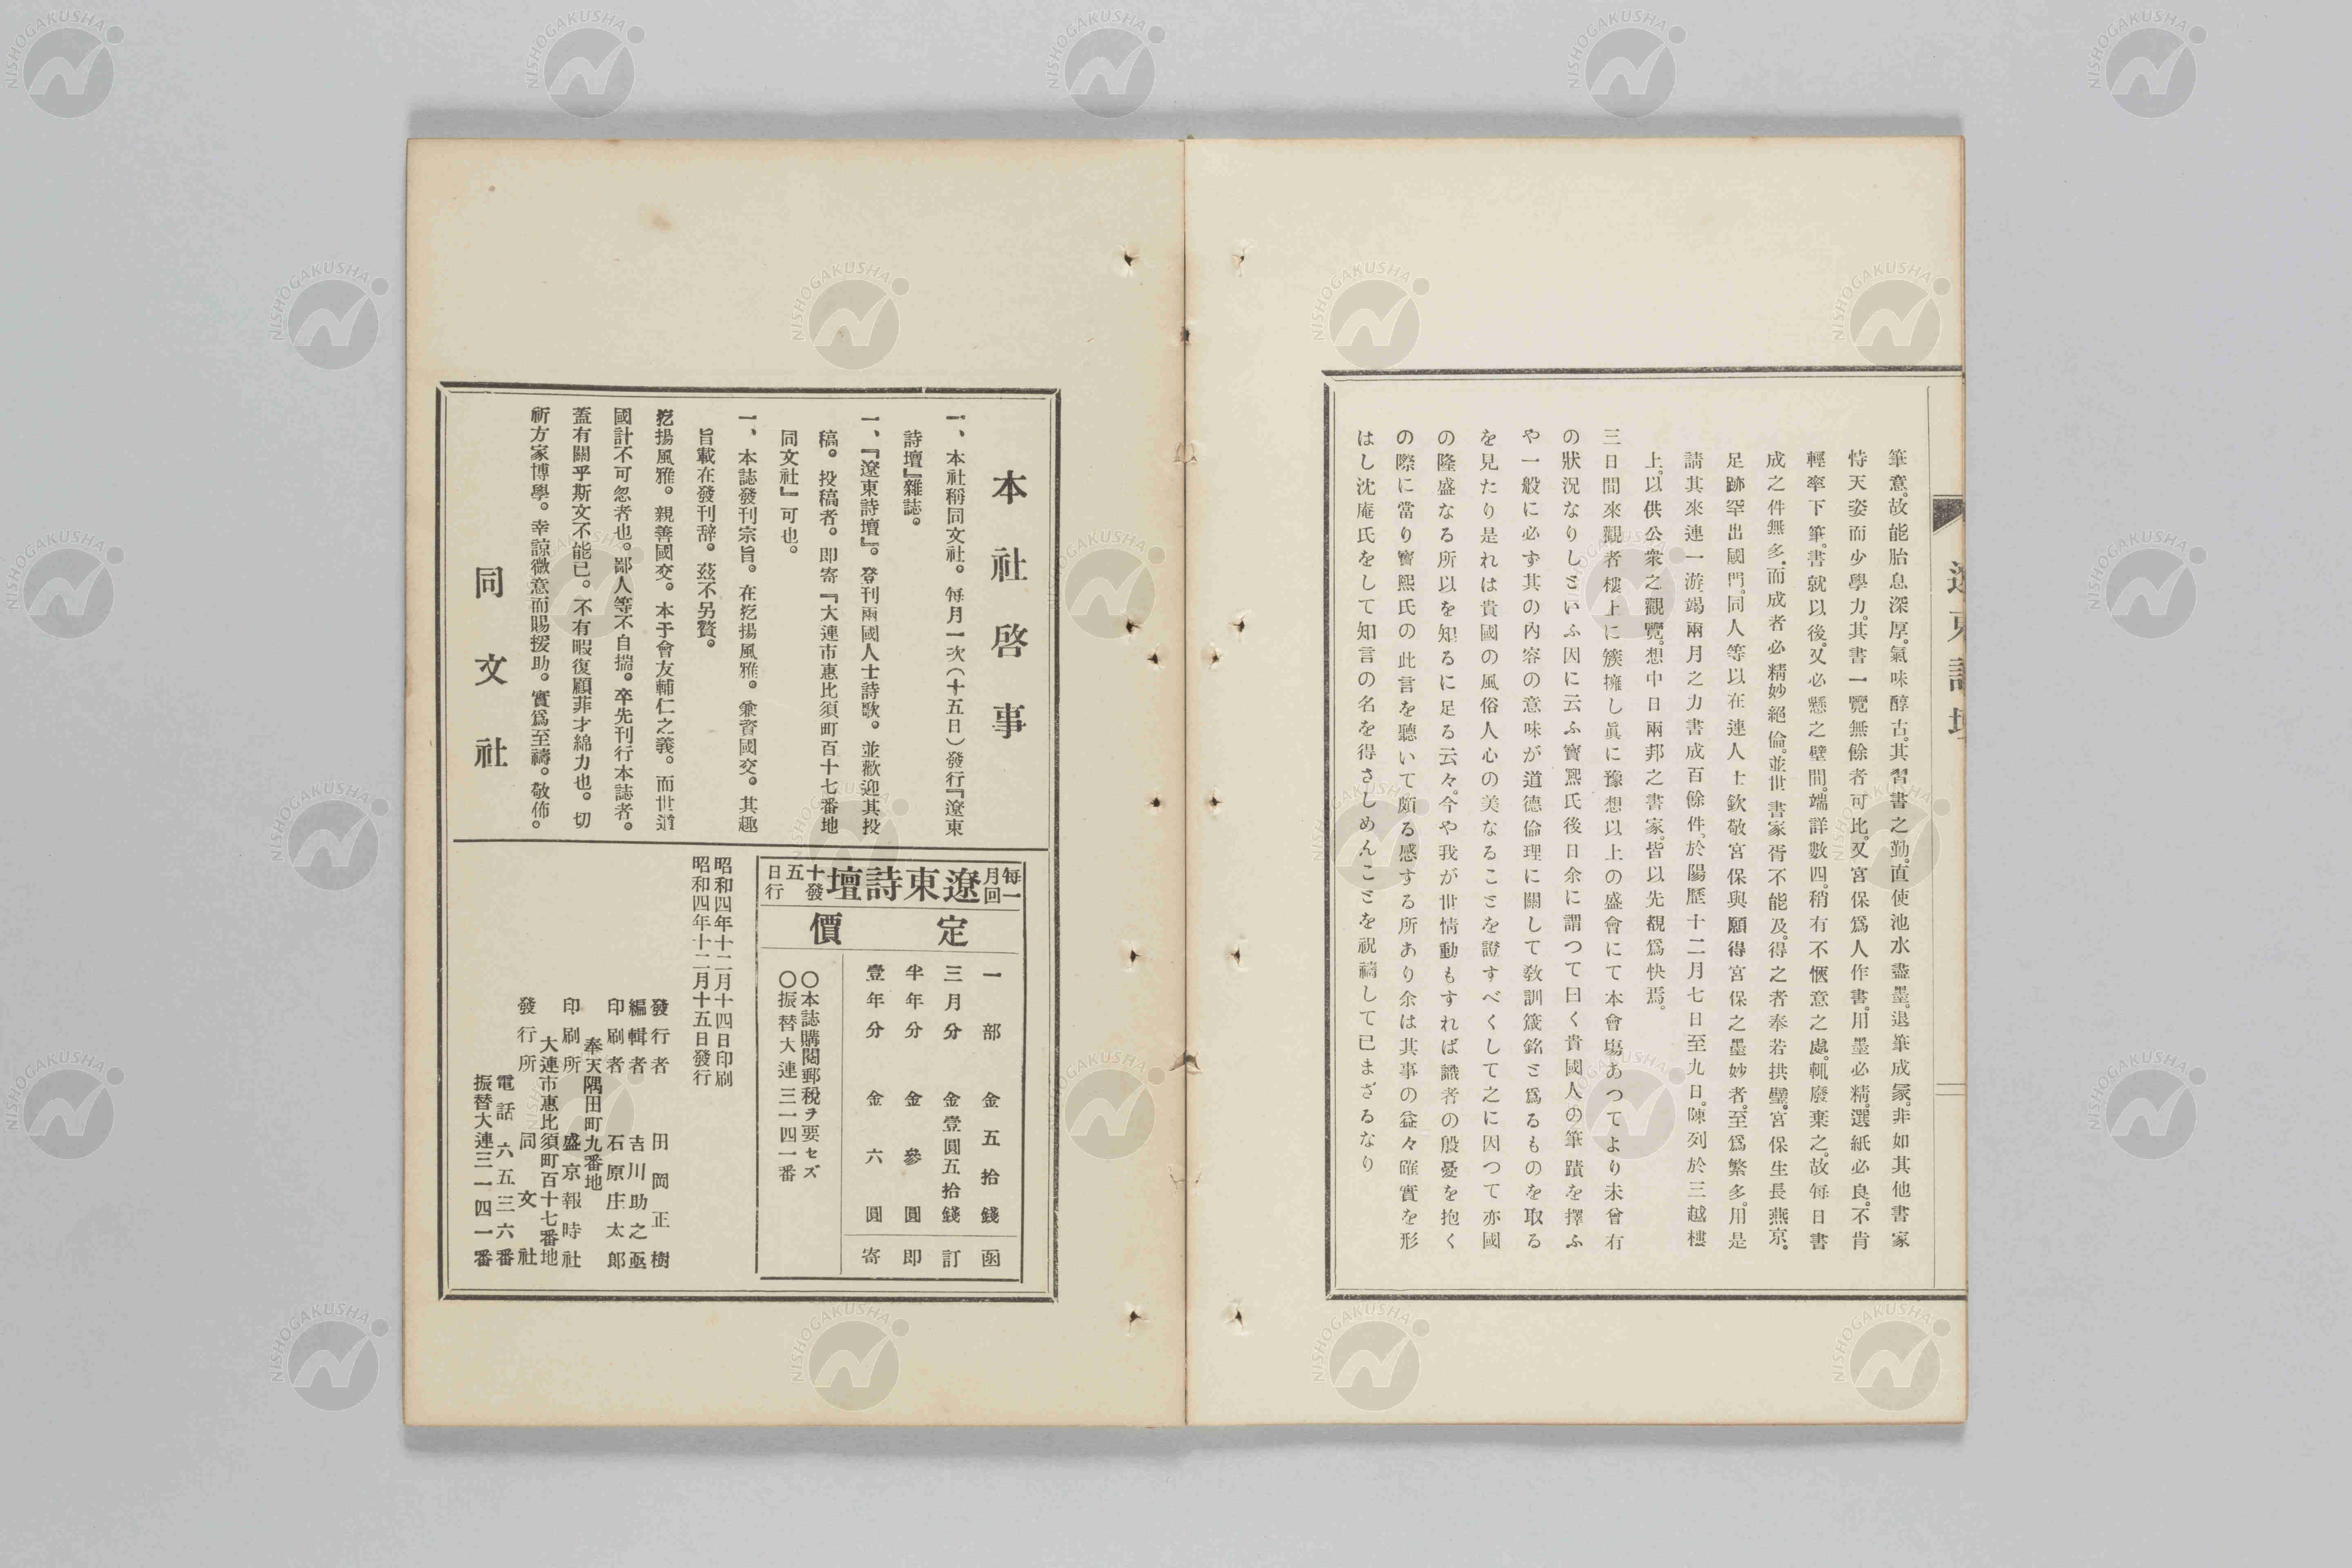 遼東詩壇
筆意。故能胎息深厚。氣味醇古。其習書之勤。直使池水盡墨。退筆成冢。非如其他書家
恃天姿而少學力。其書一覽無餘者可比。又宮保爲人作書。用墨必精。選紙必良。不肯
輕率下筆。書就以後。又必懸之壁間。端詳數四。稍有不愜意之處。輒廢棄之。故每日書
成之件無多。而成者必精妙絕倫。並世書家胥不能及。得之者奉若拱璧。宮保生長燕京。
足跡罕出國門。同人等以在連人士欽敬宮保與願得宮保之墨妙者。至爲繁多。用是
請其來連一游竭兩月之力書成百餘件、於陽歷十二月七日至九日。陳列於三越樓
上。以供公衆之觀覽。想中日兩邦之書家。皆以先覩爲快焉。
三日間來觀者樓上に簇擁し眞に豫想以上の盛會にて本會場あつてより未曾有
の狀況なりしといふ因に云ふ寶熙氏後日余に謂つて曰く貴國人の筆蹟を擇ふ
や一般に必ず其の內容の意味が道德倫理に關して敎訓箴銘と爲るものを取る
を見たり是れは貴國の風俗人心の美なることを證すべくして之に因つて亦國
の隆盛なる所以を知るに足る云々。今や我が世情動もすれば識者の殷憂を抱く
の際に當り寶熙氏の此言を聽いて頗る感する所あり余は其事の益々確實を形
はし沈庵氏をして知言の名を得さしめんことを祝禱して已まざるなり
本社啓事
一、本社稱同文社。每月一次(十五日)發行『遼東
詩壇』雜誌。
一、『遼東詩壇』。登刊兩國人士詩歌。並歡迎其投
稿。投稿者。即寄『大連市惠比須町百十七番地
同文社』可也。
一、本誌發刊宗旨。在挖揚風雅。兼資國交。其趣
旨載在發刊辭。茲不另贅。
挖揚風雅。親善國交。本于會友輔仁之義。而世道
國計不可忽者也。鄙人等不自揣。卒先刊行本誌者。
蓋有關乎斯文不能已。不有暇復顧菲才綿力也。切
祈方家博學。幸諒微意而賜援助。實爲至禱。敬佈。
同文社
每月一回 遼東詩壇 十五日發行
定價
一部 金五拾錢 函
三月分 金壹圓五拾錢 訂
半年分 金參圓 即
壹年分 金六圓 寄
〇本誌購閱郵稅ヲ要セズ
〇振替大連三一四一番
昭和四年十二月十四日印刷
昭和四年十二月十五日發行
發行者 田岡正樹
編輯者 吉川助之亟
印刷者 石原庄太郎
奉天隅田町九番地
印刷所 盛京報時社
大連市惠比須町百十七番地
發行所 同文社
電話六五三六番
振替大連三一四一番
NISHOGAKUSHA